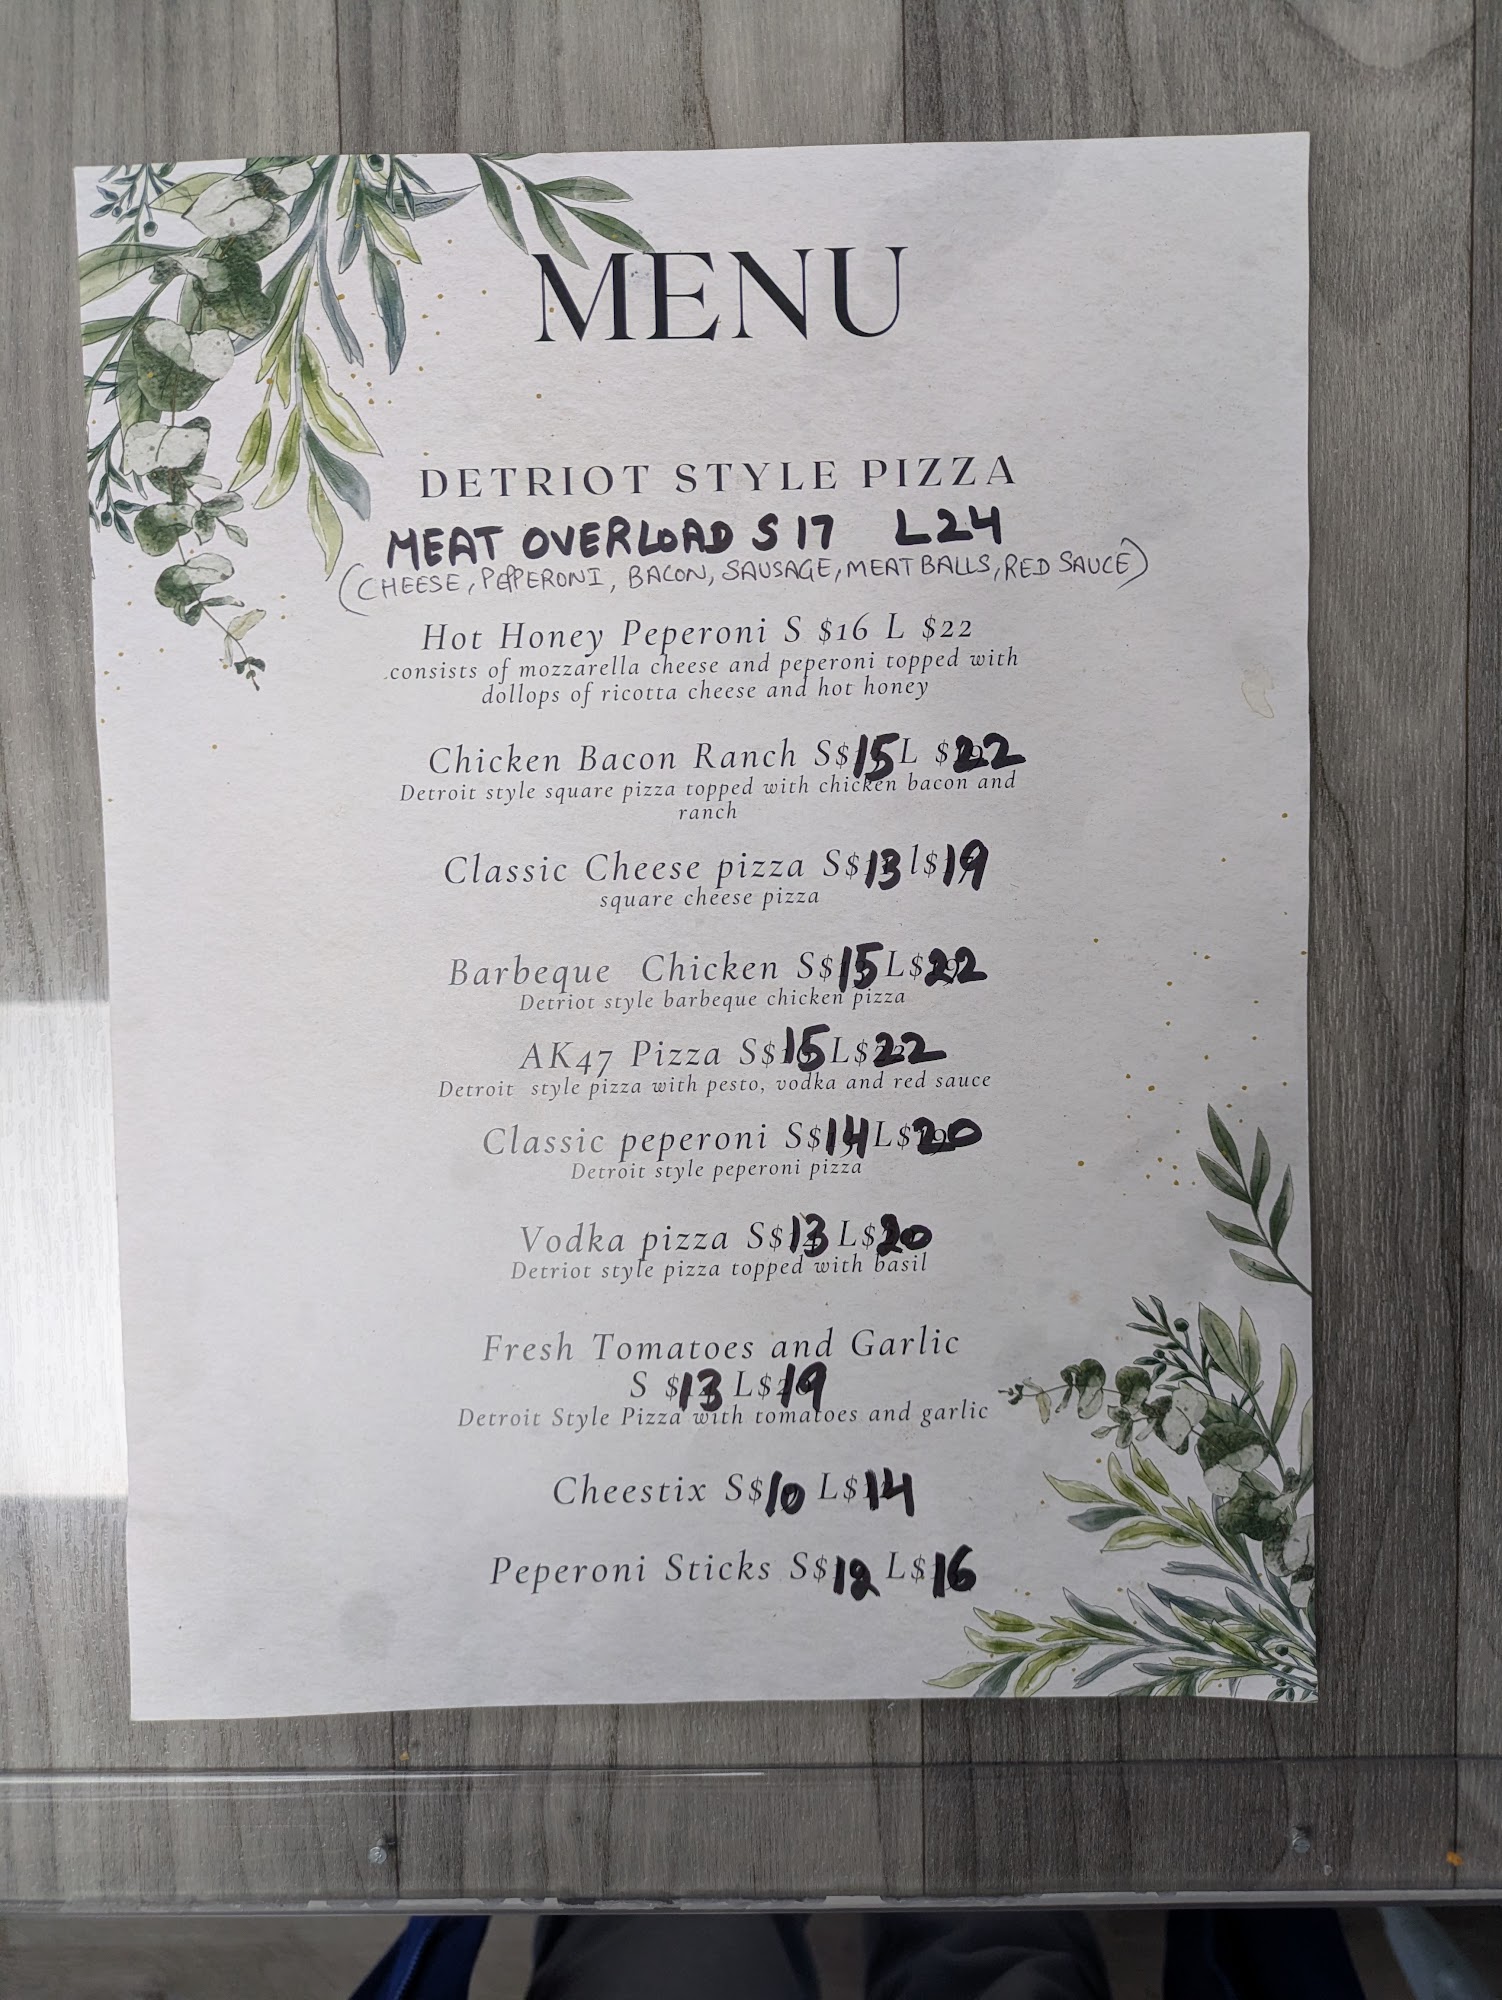 MENU
DETRIOT STYLE PIZZA
MEAT OVERLOAD S 17 L 24
(CHEESE, PEPPERONI, BACON, SAUSAGE, MEAT BALLS, RED SAUCE)
Hot Honey Peperoni S $16 L $22
consists of mozzarella cheese and peperoni topped with
dollops of ricotta cheese and hot honey
Chicken Bacon Ranch S$15 L $22
Detroit style square pizza topped with chicken bacon and
ranch
Classic Cheese pizza S$13 l$19
square cheese pizza
Barbeque Chicken S$15 L$22
Detriot style barbeque chicken pizza
AK47 Pizza S$15 L$22
Detroit style pizza with pesto, vodka and red sauce
Classic peperoni S$14 L$20
Detroit style peperoni pizza
Vodka pizza S$13 L$20
Detriot style pizza topped with basil
Fresh Tomatoes and Garlic
S $13 L$19
Detroit Style Pizza with tomatoes and garlic
Cheestix S$10 L$14
Peperoni Sticks S$12 L$16